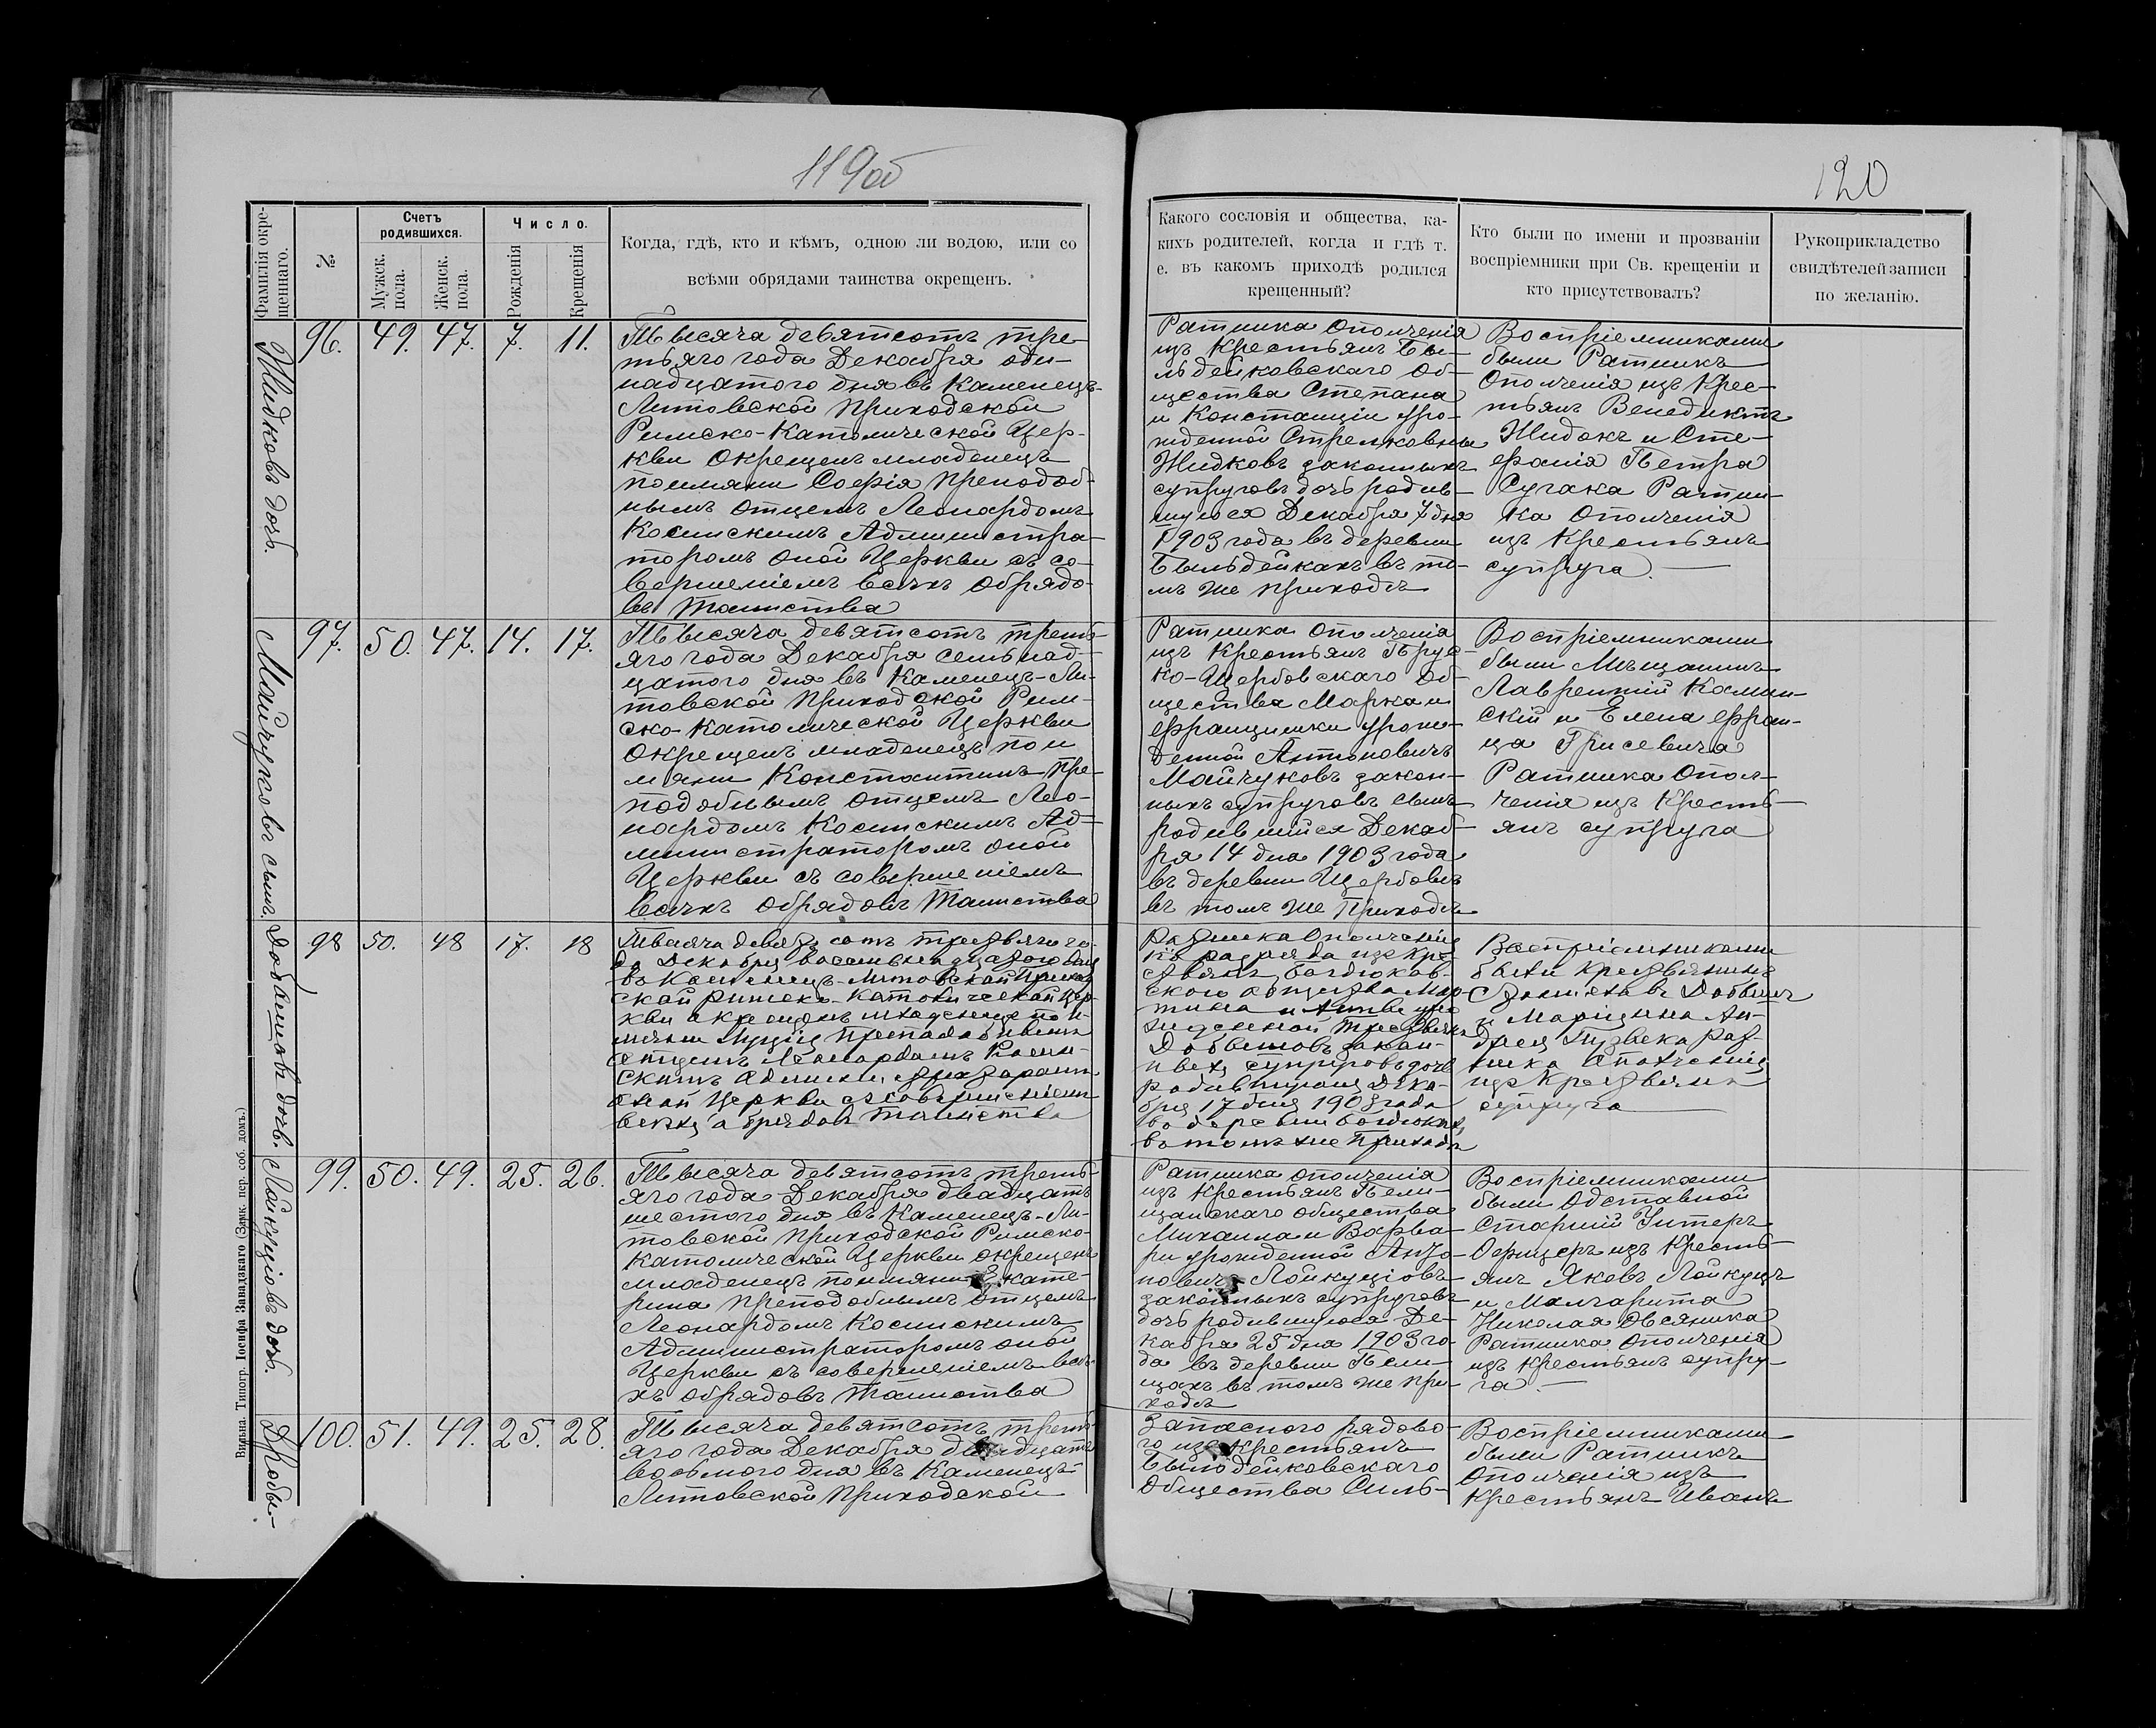 119об
120
Фамилія окре-
щеннаго.
№
Счетъ
родившихся.
Мужск.
пола.
Женск.
пола.
Число.
Рожденія
Крещенія
Когда, гдѣ, кто и кѣмъ, одною ли водою, или со
всѣми обрядами таинства окрещенъ.
Какого сословія и общества, ка-
кихъ родителей, когда и гдѣ т.
е. въ какомъ приходѣ родился
крещенный?
Кто были по имени и прозваніи
воспріемники при Св. крещеніи и
кто присутствовалъ?
Рукоприкладство
свидѣтелей записи
по желанію.
Жидковъ дочь.
96. 49. 47. 7. 11.
Тысяча девятсотъ тре-
тьяго года Декабря оди-
надцатого дня въ Каменецъ-
Литовской Приходской
Римско-Католической Цер-
кви Окрещенъ младенецъ
поимяни Софія Преподоб-
нымъ отцемъ Леонардомъ
Косинскимъ Администра-
торомъ оной Церкви съ со-
вершеніемъ всѣхъ обрядо-
въ Таинства
Ратника Ополченія
изъ Крестьянъ Бы-
льдейковскаго Об-
щества Степана
и Констанціи уро-
жденной Стрелковны
Жидковъ законныхъ
супруговъ дочь родив-
шуюся Декабря 7 дня
1903 года въ деревни
Быльдейкахъ въ то-
мъ же приходѣ
Воспріемниками
были Ратникъ
Ополченія изъ Крес-
тьянъ Венедиктъ
Жидокъ и Сте-
фанія Петра
Сугака Ратни-
ка Ополченія
изъ Крестьянъ
супруга.
Майчуковъ сынъ.
97. 50. 47. 14. 17.
Тысяча девятсотъ треть-
яго года Декабря семьнад-
цатого дня въ Каменецъ-Ли-
товской Приходской Рим-
ско-Католической Церкви
Окрещенъ младенецъ пои
мяни Константинъ Пре-
подобнымъ отцемъ Лео-
нардомъ Косинскимъ Ад-
министраторомъ оной
Церкви съ совершеніемъ
всѣхъ обрядовъ Таинства
Ратника Ополченія
изъ Крестьянъ Прус-
ко-Щербовскаго Об-
щества Марка и
Францишки урож-
денной Антоновичъ
Майчуковъ закон-
ныхъ супруговъ сынъ
родившийся Декаб-
ря 14 дня 1903 года
въ деревни Щербовъ
въ томъ же Приходѣ
Воспріемниками
были Мѣщанинъ
Лаврентій Камин-
скій и Елена Фран-
ца Грисевича
Ратника Опол-
ченія изъ Кресть-
янъ супруга
Добышовъ дочь.
98 50. 48 17. 18
Тысяча девятсотъ третьяго го-
да Декабря восемьнадцатого дня
въ Каменецъ-Литовской Приход-
ской Римско-Католической Цер-
кви окрещенъ младенецъ по и-
мяни Луція Преподобнымъ
отцемъ Леонардомъ Косин-
скимъ Администраторомъ
оной Церкви съ совершеніемъ
всѣхъ обрядовъ Таинства
Ратника Ополченія
разряда изъ Кре-
стьянъ
скаго общества Мар-
тина и
жденной
Добышовъ закон-
ныхъ супруговъ дочь
родившуюся Дека-
бря 17 дня 1903 года
въ деревни
въ томъ же Приходѣ
Воспріемниками
были Крестьянинъ
Станиславъ Добышъ
и Марцина Ан-
дрея Рат-
ника Ополченія
изъ Крестьянъ
супруга
Лойкуціовъ дочь.
99. 50. 49. 25. 26.
Тысяча девятсотъ треть-
яго года Декабря двадцать
шестого дня въ Каменецъ-Ли-
товской Приходской Римско-
Католической Церкви окрещенъ
младенецъ поимяни Екате-
рина Преподобнымъ Отцемъ
Леонардомъ Косинскимъ
Администраторомъ оной
Церкви съ совершеніемъ всѣ-
хъ обрядовъ Таинства
Ратника ополченія
изъ Крестьянъ Пели-
щанскаго общества
Михаила и Варва-
ри урожденной Анто-
новичъ Лойкуціовъ
законныхъ супруговъ
дочь родившуюся Де-
кабря 25 дня 1903 го-
да въ деревни Пели-
щахъ въ томъ же при-
ходѣ
Воспріемниками
были Одставной
Старшій Унтеръ
Офицеръ изъ Кресть-
янъ Яковъ Лойкуцъ
и Малгарита
Николая Овсяника
Ратника Ополченія
изъ Крестьянъ супру-
га.
Дробы-
100. 51. 49. 25. 28.
Тысяча девятсотъ треть-
яго года Декабря двадцать
восьмого дня въ Каменецъ-
Литовской Приходской
Запасного рядово-
го изъ Крестьянъ
Быльдейковскаго
Общества Силь-
Воспріемниками
были Ратникъ
Ополченія изъ
Крестьянъ Иванъ
Вильна. Типогр. Іосифа Завадзкаго (Замк. пер. соб. домъ.)